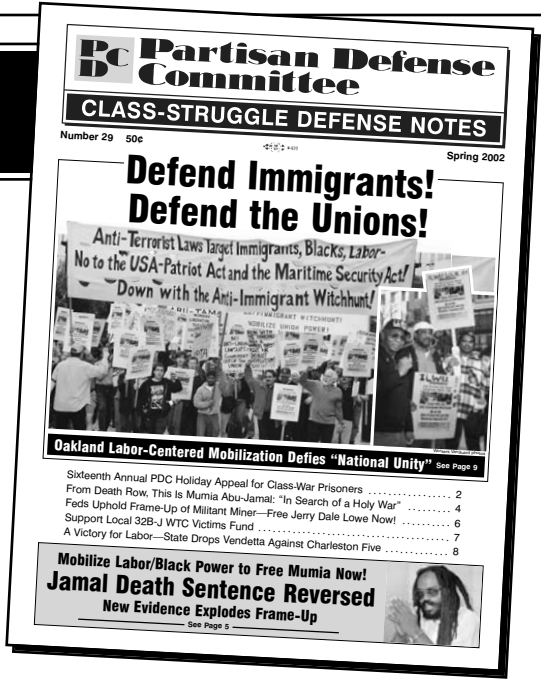 PDC Partisan Defense
Committee
CLASS-STRUGGLE DEFENSE NOTES
Number 29 50¢
Spring 2002
Defend Immigrants!
Defend the Unions!
Anti-Terrorist Laws Target Immigrants, Blacks, Labor-
No to the USA-Patriot Act and the Maritime Security Act!
Down with the Anti-Immigrant Witchhunt!
MOBILIZE UNION POWER!
ILWU
Oakland Labor-Centered Mobilization Defies “National Unity” See Page 9
Sixteenth Annual PDC Holiday Appeal for Class-War Prisoners ................ 2
From Death Row, This Is Mumia Abu-Jamal: “In Search of a Holy War” ......... 4
Feds Uphold Frame-Up of Militant Miner—Free Jerry Dale Lowe Now! ............ 6
Support Local 32B-J WTC Victims Fund ..................................... 7
A Victory for Labor—State Drops Vendetta Against Charleston Five ............. 8
Mobilize Labor/Black Power to Free Mumia Now!
Jamal Death Sentence Reversed
New Evidence Explodes Frame-Up
See Page 5